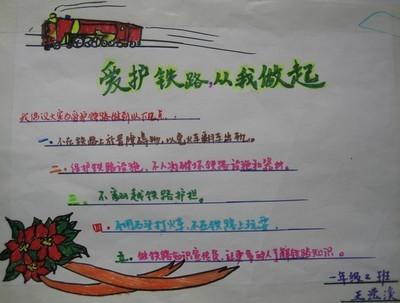 爱护铁路,从我做起
我倡议大家为爱护铁路做到以下几点:
一、不在铁路上放置障碍物,以免火车翻车出轨。
二、保护铁路设施,不人为破坏铁路设施和器材。
三、不翻越铁路护栏。
四、不用石头打火车,不在铁路上玩耍。
五、做铁路知识宣传员,让更多的人了解铁路知识。
一年级2班
王